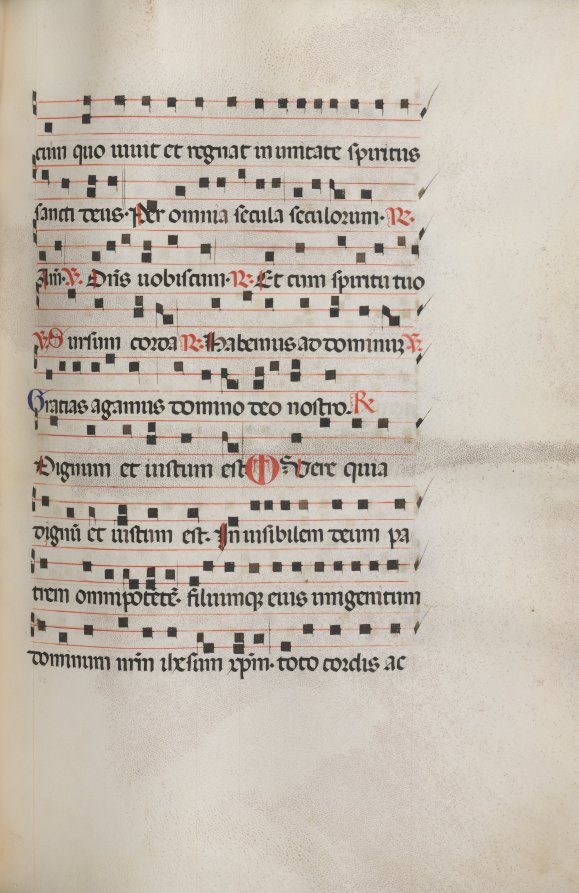 cum quo uiuit et regnat in unitate spiritus
sancti deus. Per omnia secula seculorum. R.
Am̄. V. Dn̄s uobiscum. R. Et cum spiritu tuo
V. S ursum corda R. Habemus ad dominum V.
Gratias agamus domino deo nostro. R
Dignum et iustum est Vere quia
dignū et iustum est. In uisibilem deum pa
trem omnipotētē. filiumq; eius unigenitum
dominum nr̄m ihesum xp̄m. toto cordis ac